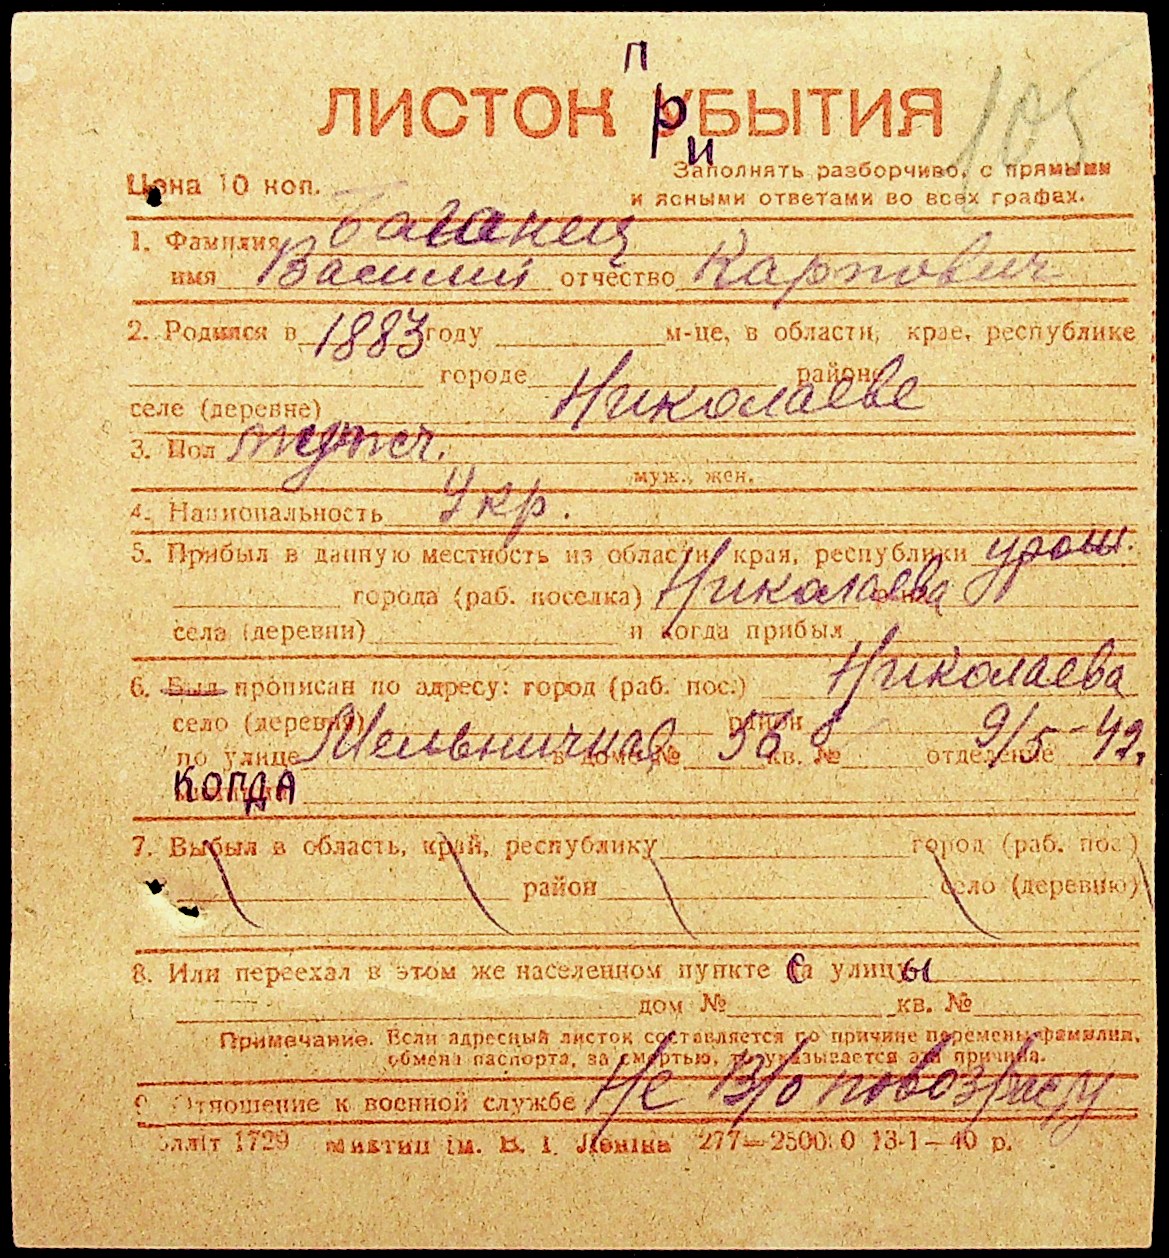 ЛИСТОК ПРИБЫТИЯ
105
Цена 10 коп.
Заполнять разборчиво, с прямыми
и ясными ответами во всех графах.
1. Фамилия Баганец
имя Василий отчество Карпович
2. Родился в 1883 году м-це, в области, крае, республике
городе районе
селе (деревне) Николаеве
3. Пол мужсч.
муж., жен.
4. Национальность Укр.
5. Прибыл в данную местность из области, края, республики урож.
города (раб. поселка) Николаева
села (деревни) и когда прибыл
6. Был прописан по адресу: город (раб. пос.) Николаева
село (деревня) район
по улице Мельничная в доме № 5б кв. № отделение 9/5-42.
КОГДА
7. Выбыл в область, край, республику город (раб. пос.)
район село (деревню)
8. Или переехал в этом же населенном пункте с улицы
дом № кв. №
Примечание. Если адресный листок составляется по причине перемены фамилии,
обмена паспорта, за смертью, то указывается эта причина.
9. Отношение к военной службе Не В/о по возрасту
1729 ім. В. І. Леніна 277—2500 0 13-1—40 р.